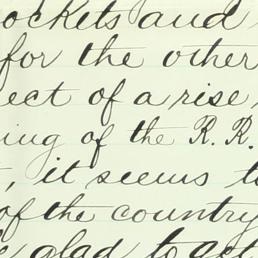 ockets and
for the other
ect of a rise
ing of the R. R.
, it seems to
of the country
e glad to get